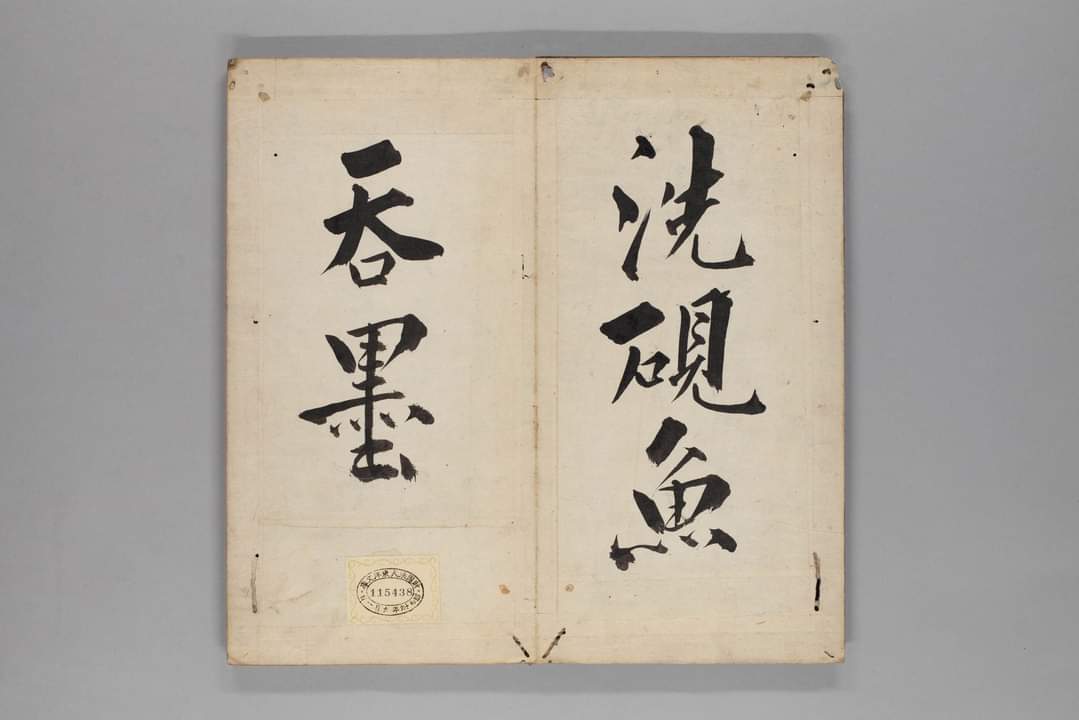 洗硯魚
吞墨
115438